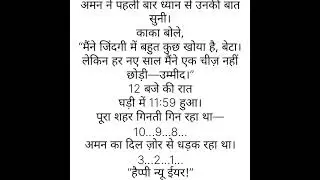 अमन ने पहली बार ध्यान से उनकी बात
सुनी।
काका बोले,
“मैंने जिंदगी में बहुत कुछ खोया है, बेटा।
लेकिन हर नए साल मैंने एक चीज़ नहीं
छोड़ी—उम्मीद।”
12 बजे की रात
घड़ी में 11:59 हुआ।
पूरा शहर गिनती गिन रहा था—
10…9…8…
अमन का दिल ज़ोर से धड़क रहा था।
3…2…1…
“हैप्पी न्यू ईयर!”